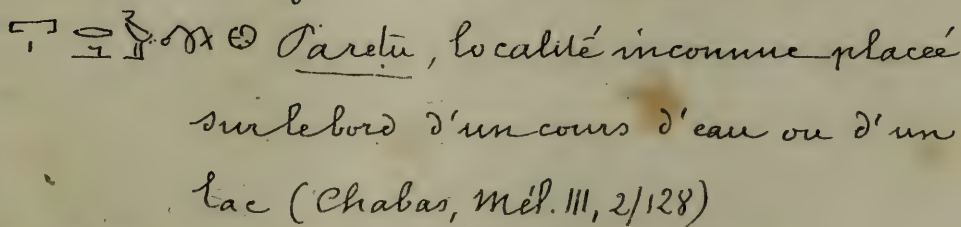 Paretu, localité inconnue placée
sur le bord d'un cours d'eau ou d'un
lac (Chabas, Mél. III, 2/128)